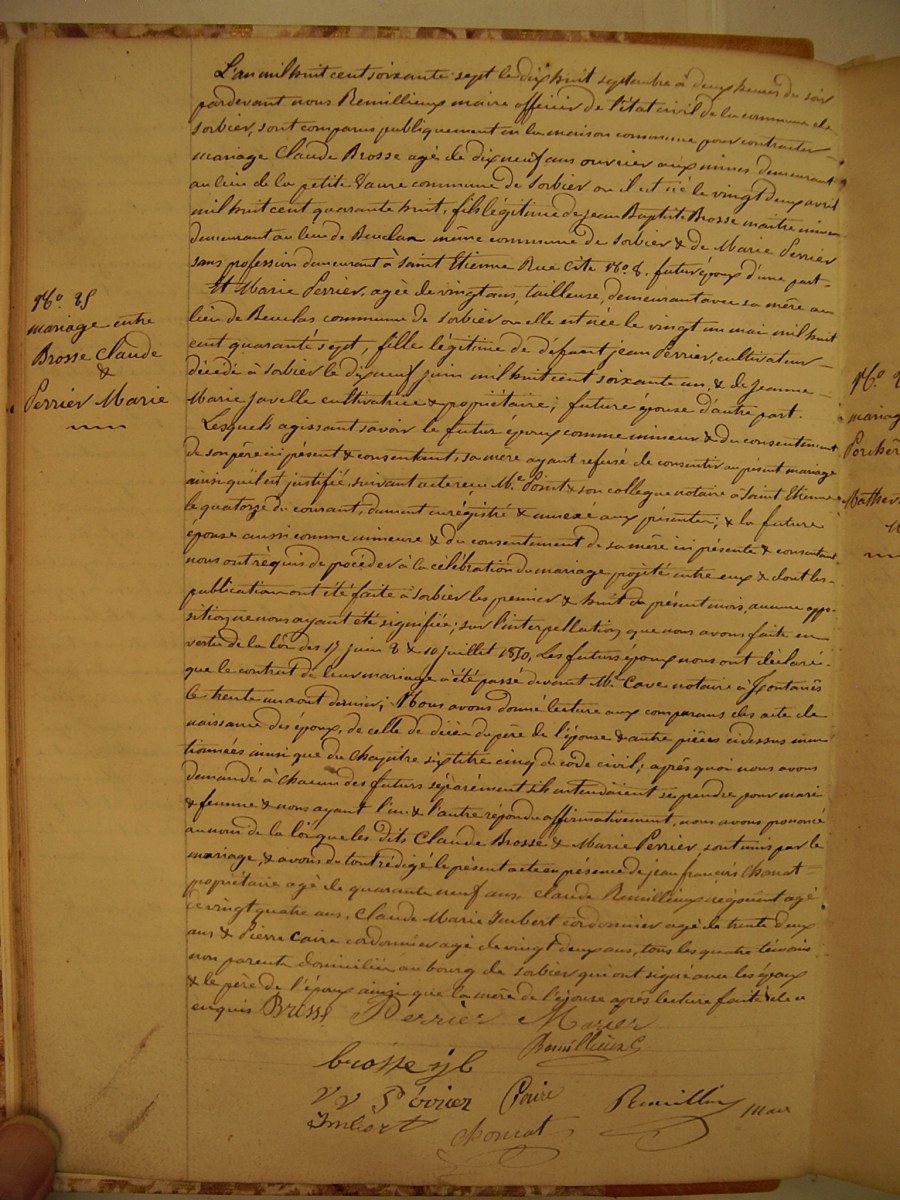 No. 25
mariage entre
Brosse Claude
&
Perrier Marie
L'an mil huit cent soixante sept le dix huit septembre à deux heures du soir
pardevant nous Remillieux maire officier de l'état civil de la commune de
Sorbier, sont comparus publiquement en la maison commune pour contracter
mariage Claude Brosse agé de dix neuf ans ouvrier aux mines demeurant
au lieu de la petite Vaure commune de Sorbier ou il est né le vingt deux avril
mil huit cent quarante huit, fils légitime de Jean Baptiste Brosse maitre mineur
demeurant au lieu de Beuclas même commune de Sorbier & de Marie Perrier
sans profession demeurant à Saint Etienne Rue Cité No. 8. futur époux d'une part
Et Marie Perrier, agée de vingt ans, tailleuse, demeurant avec sa mère au
lieu de Beuclas commune de Sorbier ou elle est née le vingt un mai mil huit
cent quarante sept, fille légitime de défunt jean Perrier, cultivateur
décédé à Sorbier le dix neuf juin mil huit cent soixante un, & de Jeanne
Marie Javelle cultivatrice & propriétaire; future épouse d'autre part.
Lesquels agissant savoir le futur epoux comme mineur & du consentement
de son père ici présent & consentant, sa mère ayant refusé de consentir au présent mariage
ainsi qu'il est justifié, suivant acte reçu Me. Point & son collegue notaire à Saint Etienne
le quatorze du courant, dument enrégistré & annexé aux présentes; & la future
épouse aussi comme mineure & du consentement de sa mère ici présente & consentant
nous ont réquis de procéder à la célébration du mariage projeté entre eux & dont les
publications ont été faite à Sorbier les premier & huit du présent mois, aucune oppo-
sition ne nous ayant été signifiée; sur l'interpellation que nous avons faite en
vertu de la loi des 17 juin & 10 juillet 1850, Les futurs époux nous ont déclaré
que le contrat de leur mariage à été passé devant Me. Cave notaire à Fontanès
le trente un aout dernier; Nous avons donné lecture aux comparans des acte de
naissance des époux, de celle de décès du père de l'épouse & autre pièces ci dessus men
tionnées ainsi que du chapitre six titre cinq du code civil; après quoi nous avons
demandé à chacun des futurs séparément s'ils entendaient se prendre pour mari
& femme & nous ayant l'un & l'autre répondu affirmativement, nous avons prononcé
au nom de la loi que les dits Claude Brosse & Marie Perrier, sont unis par le
mariage, & avons de tout rédigé le présent acte en présence de jean françois Chomat
propriétaire agé de quarante neuf ans, Claude Remillieux négociant agé
de vingt quatre ans, Claude Marie Imbert cordonnier agé de trente deux
ans & Pierre Caire cordonnier agé de vingt deux ans, tous les quatre témoins
non parents domiciliés au bourg de Sorbier qui ont signé avec les époux
& le père de l'époux ainsi que la mère de l'épouse après lecture faite & de ce
enquis Brosse Perrier Marier
Remillieux C
brosse jb
Caire Remillieux Mair
Imbert
Chomat
No.
mariag
Mathev